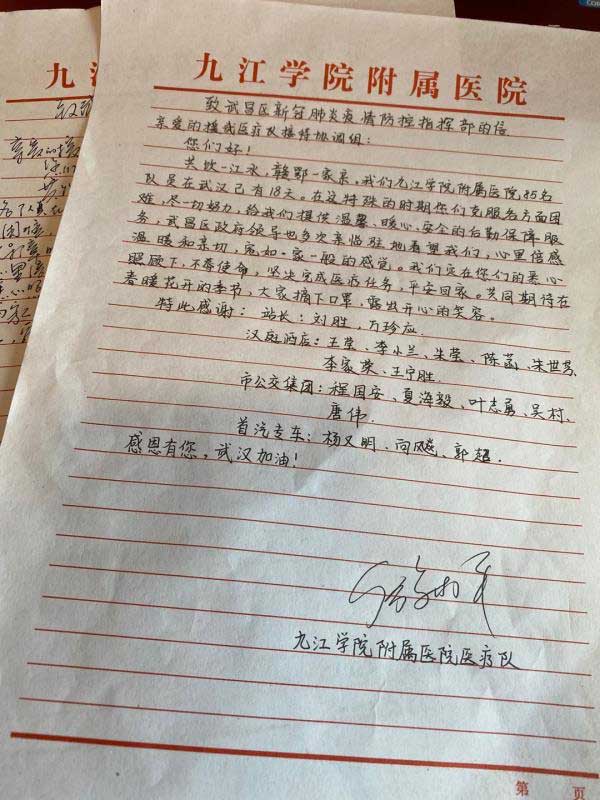 九江学院附属医院
致武昌区新冠肺炎疫情防控指挥部的信
亲爱的援我医疗队接待协调组:
您们好!
共饮一江水,赣鄂一家亲,我们九江学院附属医院,85名
队员在武汉己有18天。在这特殊的时期您们克服各方面困
难,尽一切努力,给我们提供温馨、暖心、安全的后勤保障服
务,武昌区政府领导也多次亲临驻地看望我们,心里倍感
温暖和亲切,宛如一家一般的感觉。我们定在你们的悉心
照顾下,不辱使命,坚决完成医疗任务,平安回家。共同期待在
春暖花开的季节,大家摘下口罩,露出开心的笑容。
特此感谢:站长:刘胜,万珍应
汉庭酒店:王莹、李小兰、朱莹、陈菡、朱世芬、
李家荣、王宁胜.
市公交集团:程国安、夏海毅、叶志勇、吴村、
唐伟.
首汽专车:杨又明、向飚、郭超.
感恩有您,武汉加油!
九江学院附属医院医疗队
第 页
九江